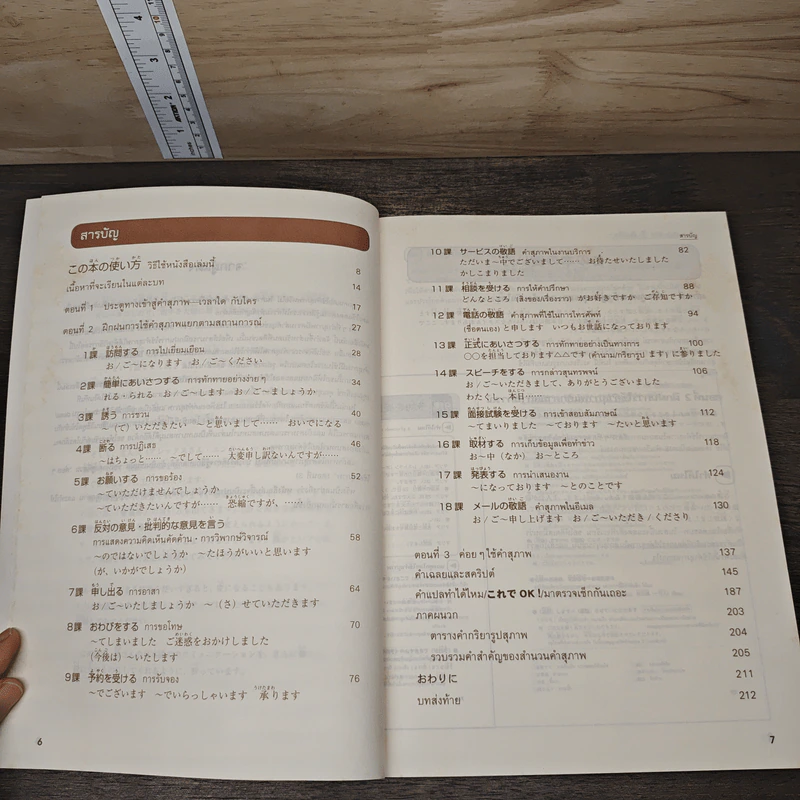 สารบัญ
この本の使い方 วิธีใช้หนังสือเล่มนี้ 8
เนื้อหาที่จะเรียนในแต่ละบท 14
ตอนที่ 1 ประตูทางเข้าสู่คำสุภาพ—เวลาใด กับใคร 17
ตอนที่ 2 ฝึกฝนการใช้คำสุภาพแยกตามสถานการณ์ 27
1課 訪問する การไปเยี่ยมเยือน 28
お/ご〜になります お/ご〜ください
2課 簡単にあいさつする การทักทายอย่างง่ายๆ 34
れる・られる お/ご〜します お/ご〜ましょうか
3課 誘う การชวน 40
〜（て）いただきたい 〜と思いまして…… おいでになる
4課 断る การปฏิเสธ 46
〜はちょっと…… 〜でして…… 大変申し訳ないんですが……
5課 お願いする การขอร้อง 52
〜ていただけませんでしょうか
〜ていただきたいんですが…… 恐縮ですが、……
6課 反対の意見・批判的な意見を言う
การแสดงความคิดเห็นคัดค้าน・การวิพากษ์วิจารณ์ 58
〜のではないでしょうか 〜たほうがいいと思います
（が、いかがでしょうか）
7課 申し出る การอาสา 64
お/ご〜いたしましょうか 〜（さ）せていただきます
8課 おわびをする การขอโทษ 70
〜てしまいました ご迷惑をおかけしました
（今後は）〜いたします
9課 予約を受ける การรับจอง 76
〜でございます 〜でいらっしゃいます 承ります
6
สารบัญ
10課 サービスの敬語 คำสุภาพในงานบริการ 82
ただいま〜中でございまして…… お待たせいたしました
かしこまりました
11課 相談を受ける การให้คำปรึกษา 88
どんなところ（สิ่งของ/เรื่องราว）がお好きですか ご存知ですか
12課 電話の敬語 คำสุภาพที่ใช้ในการโทรศัพท์ 94
（ชื่อตนเอง）と申します いつもお世話になっております
13課 正式にあいさつする การทักทายอย่างเป็นทางการ 100
〇〇を担当しております△△です（คำนาม/กริยารูป ます）に参りました
14課 スピーチをする การกล่าวสุนทรพจน์ 106
お/ご〜いただきまして、ありがとうございました
わたくし、本日……
15課 面接試験を受ける การเข้าสอบสัมภาษณ์ 112
〜てまいりました 〜ております 〜たいと思います
16課 取材する การเก็บข้อมูลเพื่อทำข่าว 118
お〜中（なか） お〜ところ
17課 発表する การนำเสนองาน 124
〜になっております 〜とのことです
18課 メールの敬語 คำสุภาพในอีเมล 130
お/ご〜申し上げます お/ご〜いただき/くださり
ตอนที่ 3 ค่อยๆ ใช้คำสุภาพ 137
คำเฉลยและสคริปต์ 145
คำแปลทำได้ไหม/これで OK !/มาตรวจเช็กกันเถอะ 187
ภาคผนวก 203
ตารางคำกริยารูปสุภาพ 204
รวบรวมคำสำคัญของสำนวนคำสุภาพ 205
おわりに 211
บทส่งท้าย 212
7